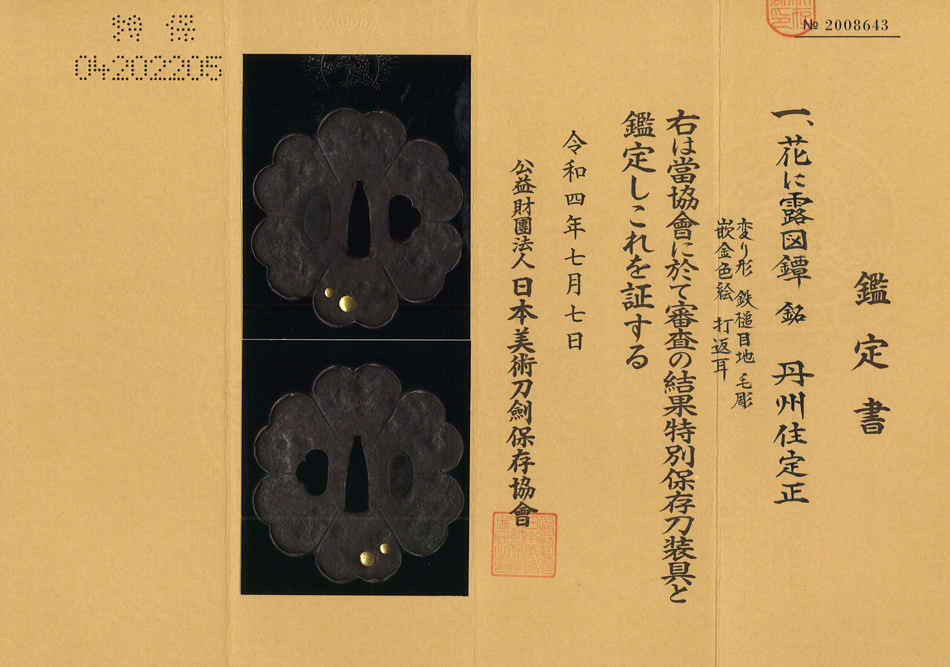 № 2008643
鑑定書
一、花に露図鐔 銘 丹州住定正
変り形 鉄槌目地 毛彫
嵌金色絵 打返耳
右は當協會に於て審査の結果特別保存刀装具と
鑑定しこれを証する
令和四年七月七日
公益財團法人 日本美術刀劍保存協會
特保
04202205